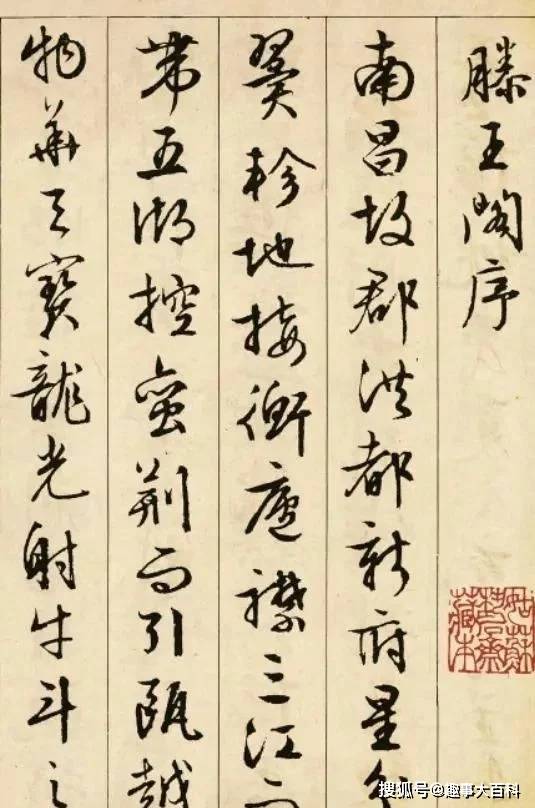 滕王閣序
南昌故郡洪都新府星分
翼軫地接衡廬襟三江而
帶五湖控蠻荆而引甌越
物華天寶龍光射牛斗之
搜狐号@趣事大百科